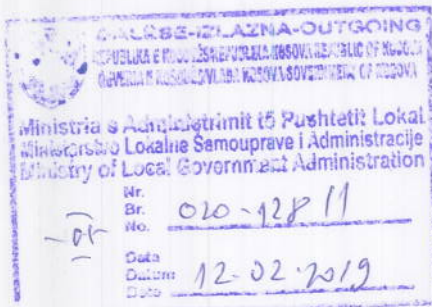 DALËSE-IZLAZNA-OUTGOING
REPUBLIKA E KOSOVËS-REPUBLIKA KOSOVA-REPUBLIC OF KOSOVA
QEVERIA E KOSOVËS/VLADA KOSOVA-GOVERNMENT OF KOSOVA
Ministria e Administrimit të Pushtetit Lokal
Ministarstvo Lokalne Samouprave i Administracije
Ministry of Local Government Administration
Nr.
Br.
No.
020-128/1
Data
Datum
Date
12-02-2019